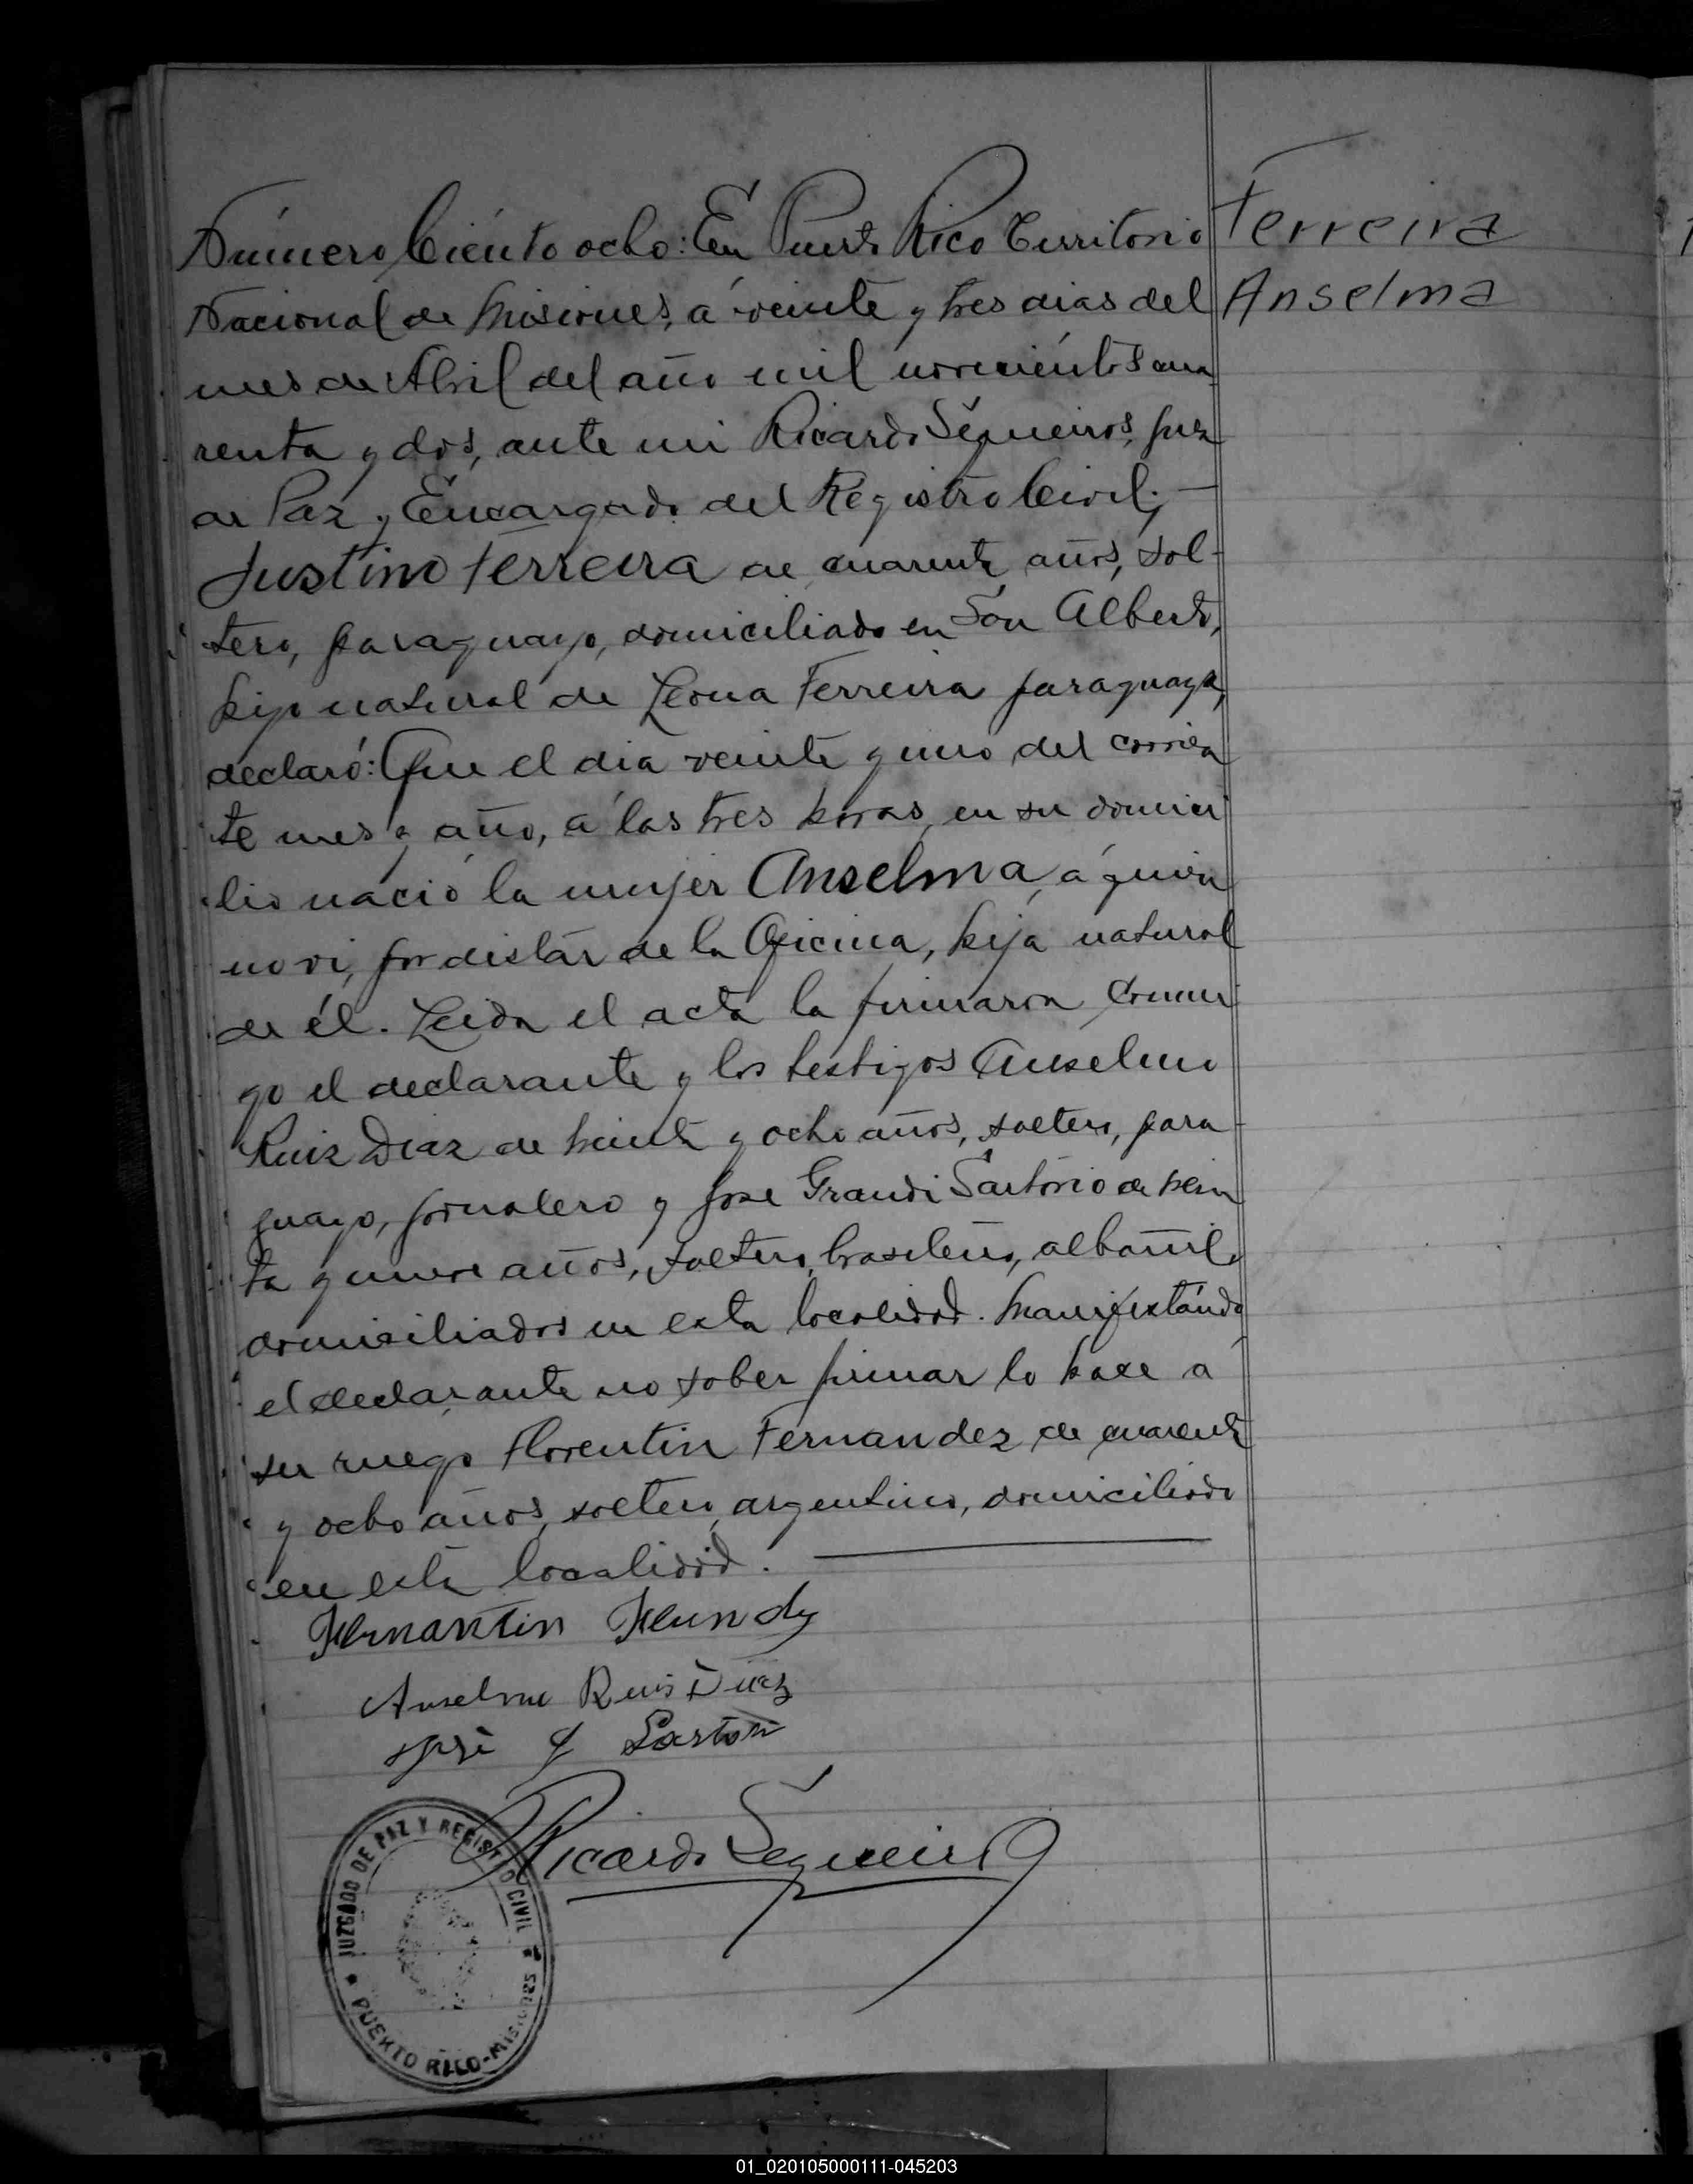 Número Ciento ocho: En Puerto Rico Territorio
Nacional de Misiones, á veinte y tres dias del
mes de Abril del año mil novecientos cua
renta y dos, ante mi Ricardo Sequeiros, Juez
de Paz y Encargado del Registro Civil;
Justino Ferreira de cuarenta años, sol-
tero, paraguayo, domiciliado en San Alberto,
hijo natural de Leona Ferreira paraguaya,
declaró: Que el dia veinte y uno del corrien
te mes y año, á las tres horas, en su domici
lio nació la mujer Anselma, á quien
no vi, por distar de la Oficina, hija natural
de él. Leida el acta la firmaron conmi
go el declarante y los testigos Anselmo
Ruiz Diaz de treinta y ocho años, soltero, para
guayo, jornalero y Jose Grandi Sartorio de trein
ta y nueve años, soltero, brasileño, albañil,
domiciliados en esta localidad. Manifestándo
el declarante no saber firmar lo hace a
su ruego Florentin Fernandez de cuarenta
y ocho años, soltero, argentino, domiciliado
en esta localidad.
Anselmo Ruis Diaz
José G Sartori
Ricardo Sequeiros
JUZGADO DE PAZ Y REGISTRO CIVIL
PUERTO RICO-MISIONES
Ferreira
Anselma
01_020105000111-045203